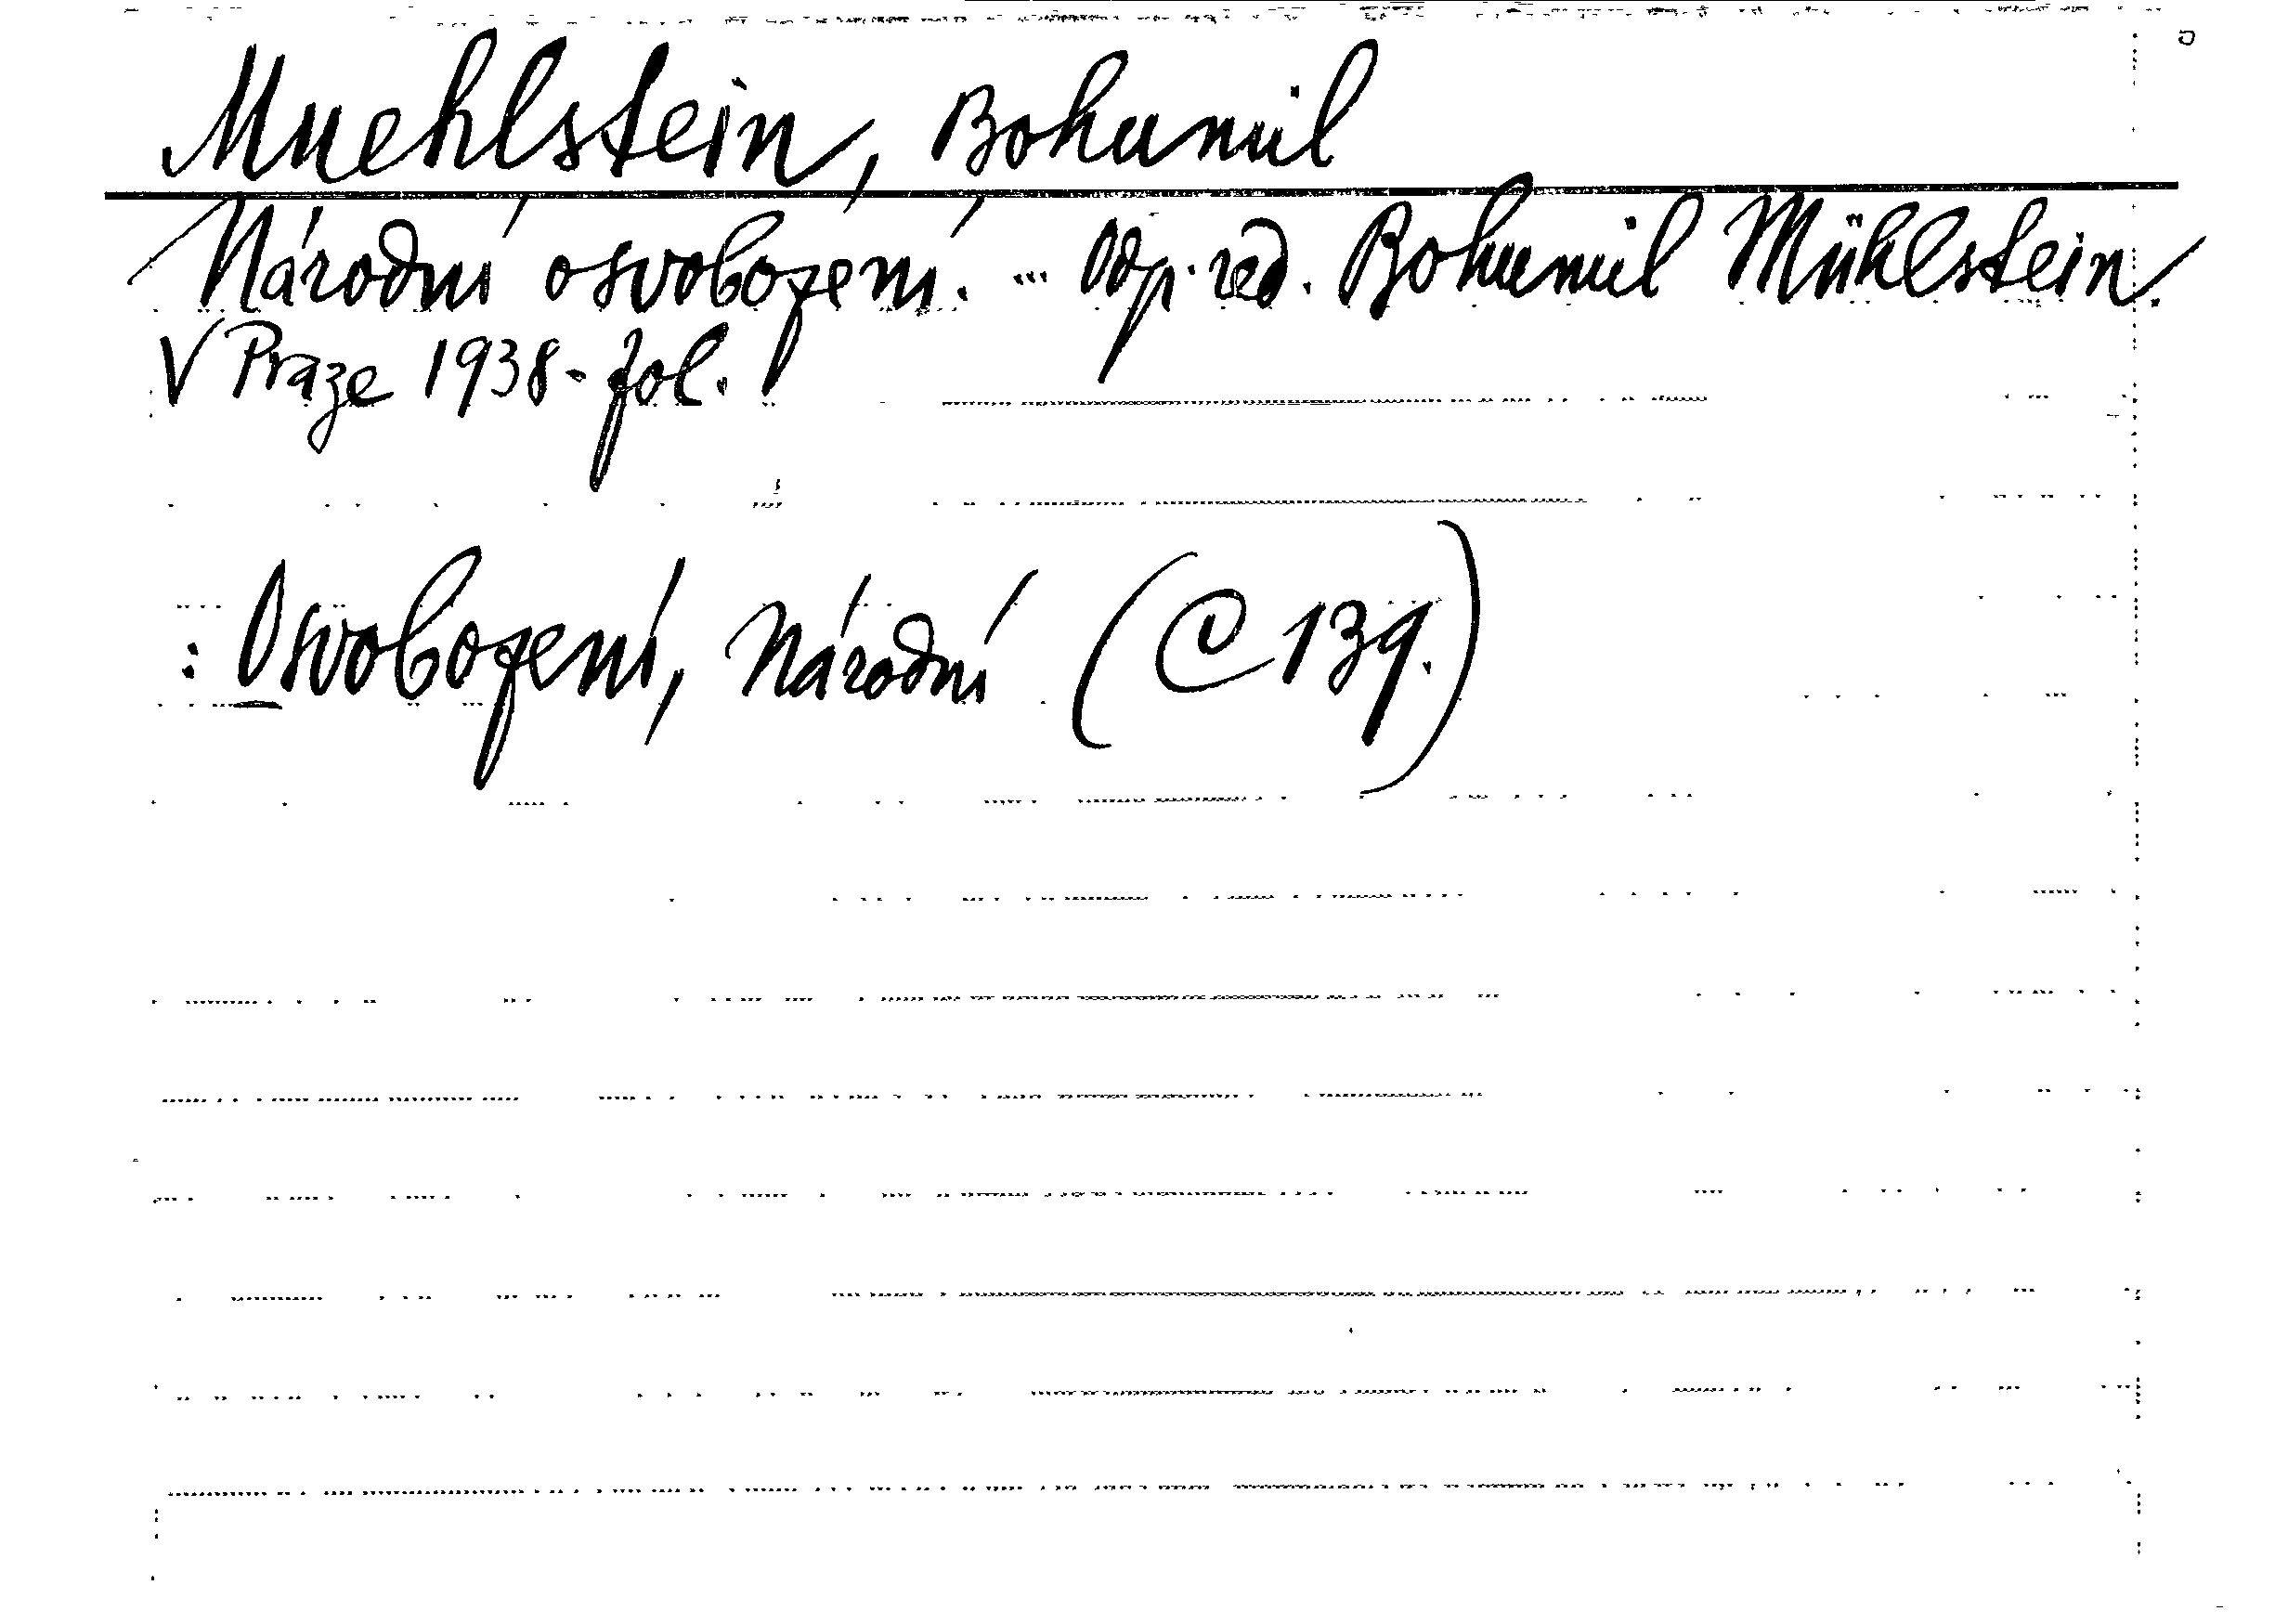 Muehlstein, Bohumil
Národní osvobození. ... Odp. red. Bohumil Mühlstein.
V Praze 1938- fol.
: Osvobození, Národní (C 139.)